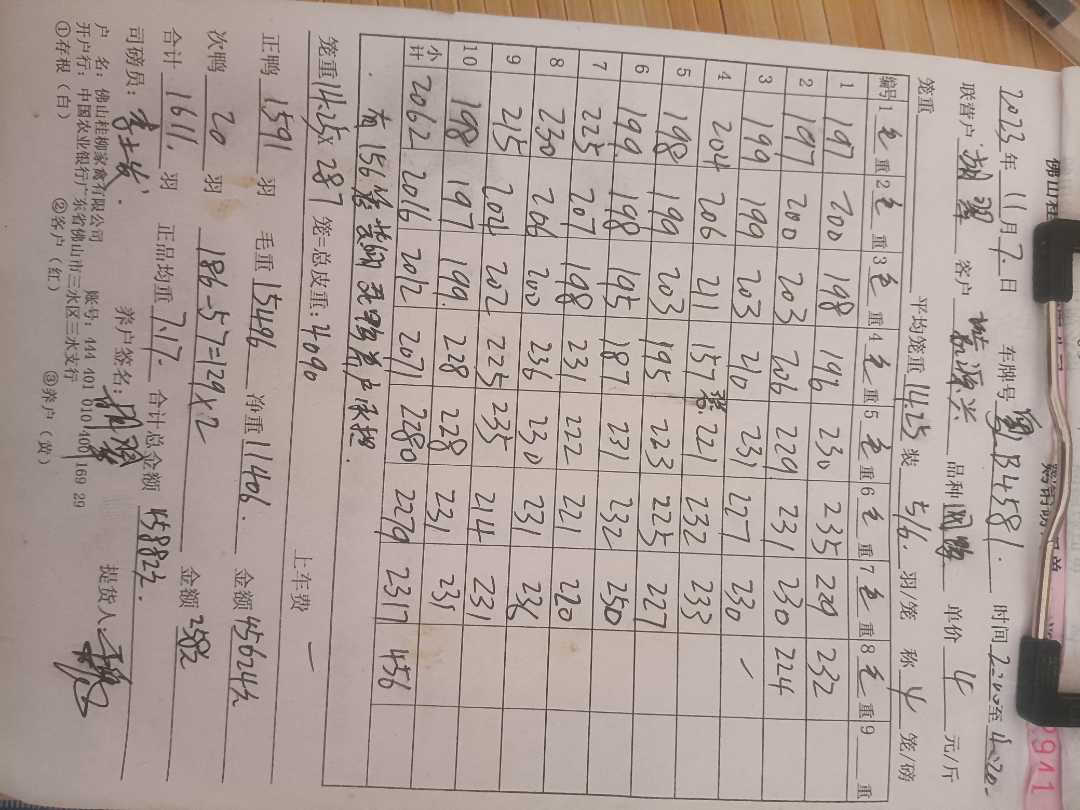 佛山桂
2941
2023年11月7日 车牌号 粤B4581. 时间 2200至4:20
联营户 客户 品种 单价 4 元/斤
笼重 平均笼重 14.25 装 5/6. 羽/笼 称 4 笼/磅
编号 1毛重 2毛重 3毛重 4毛重 5毛重 6毛重 7毛重 8毛重 9 重
1 197 200 198 196 230 235 229 232
2 197 200 203 206 229 231 230 224
3 199 199 203 210 231 227 230 —
4 204 206 211 157 221 232 233
5 198 199 203 195 223 225 227
6 199 198 195 187 231 232 250
7 225 207 198 231 222 221 220
8 230 206 200 236 230 231 236
9 215 204 202 225 235 214 231
10 198 197 199 228 228 231 231
小计 2062 2016 2012 2071 2280 2279 2317 456
有156笼
笼重 14.25 × 287 笼=总皮重: 4090 上车费 —
正鸭 1591 羽 毛重 15496 净重 11406. 金额 45624元
次鸭 20 羽 186-57=129×2 金额 258元
合计 1611. 羽 正品均重 7.17. 合计总金额 45882元.
司磅员: 养户签名: 提货人:
户 名: 佛山桂柳家禽有限公司 账号: 444 401 010 400 169 29
开户行: 中国农业银行广东省佛山市三水区三水支行
①存根（白） ②客户（红） ③养户（黄）